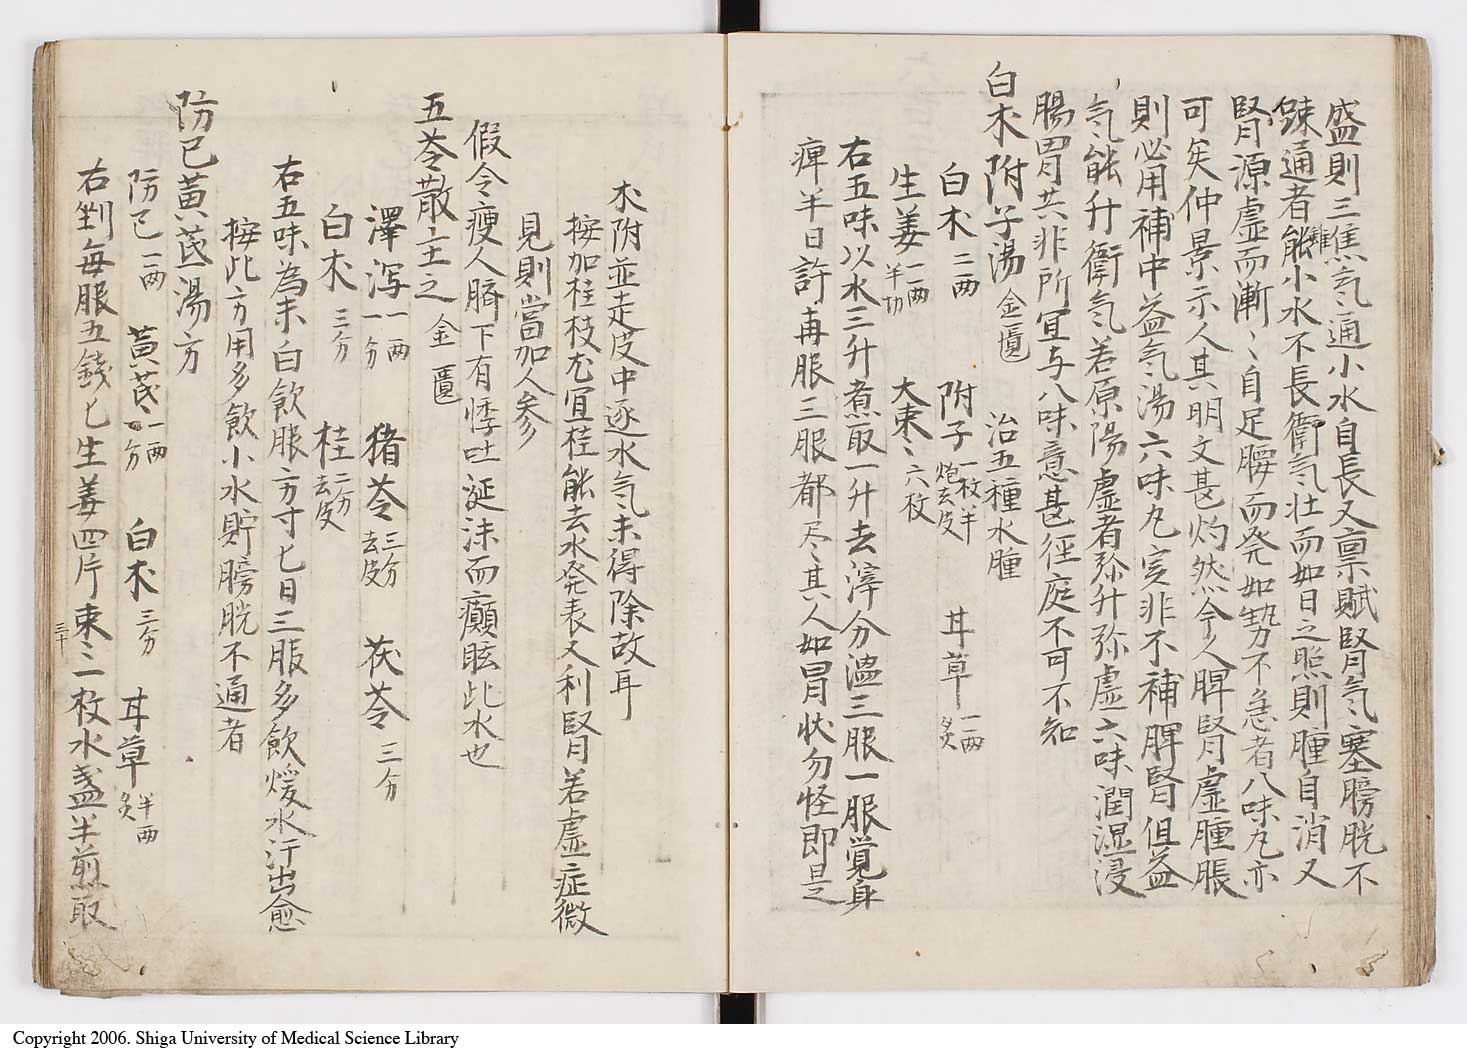 盛則三焦气通小水自長又禀賦腎气塞膀胱不
踈通者能雖小水不長衛气壮而如日之照則腫自消又
腎源虚而漸〻自足腰而発如勢不急者八味丸亦
可矣仲景示人其明文甚灼然今人脾腎虚腫脹
則必用補中益气湯六味丸实非不補脾腎但益
气能升衛气若原陽虚者弥升弥虚六味潤湿浸
腸胃共非所宜与八味意甚径庭不可不知
白朮附子湯 金匱 治五種水腫
白朮 二两 附子 一枚半 炮去皮 甘草 一两 炙
生姜 一两 半切 大棗〻 六枚
右五味以水三升煮取一升去滓分温三服一服覚身
痺半日許再服三服都尽其人如冒状勿怪即是
朮附並走皮中逐水气未得除故耳
按加桂枝尤宜桂能去水発表又利腎若虚症微
見則當加人参
假令瘦人臍下有悸吐涎沫而癲眩此水也
五苓散主之 金匱
澤泻 一两一分 猪苓 三分 去皮 茯苓 三分
白朮 三分 桂 二分 去皮
右五味為末白飲服方寸匕日三服多飲煖水汗出愈
按此方用多飲小水貯膀胱不通者
防已黄芪湯方
防已 一两 黄芪 一两一分 白朮 三分 甘草 半两 炙
右剉每服五錢匕生姜四片棗〻一枚水盞半煎取
三十
Copyright 2006. Shiga University of Medical Science Library